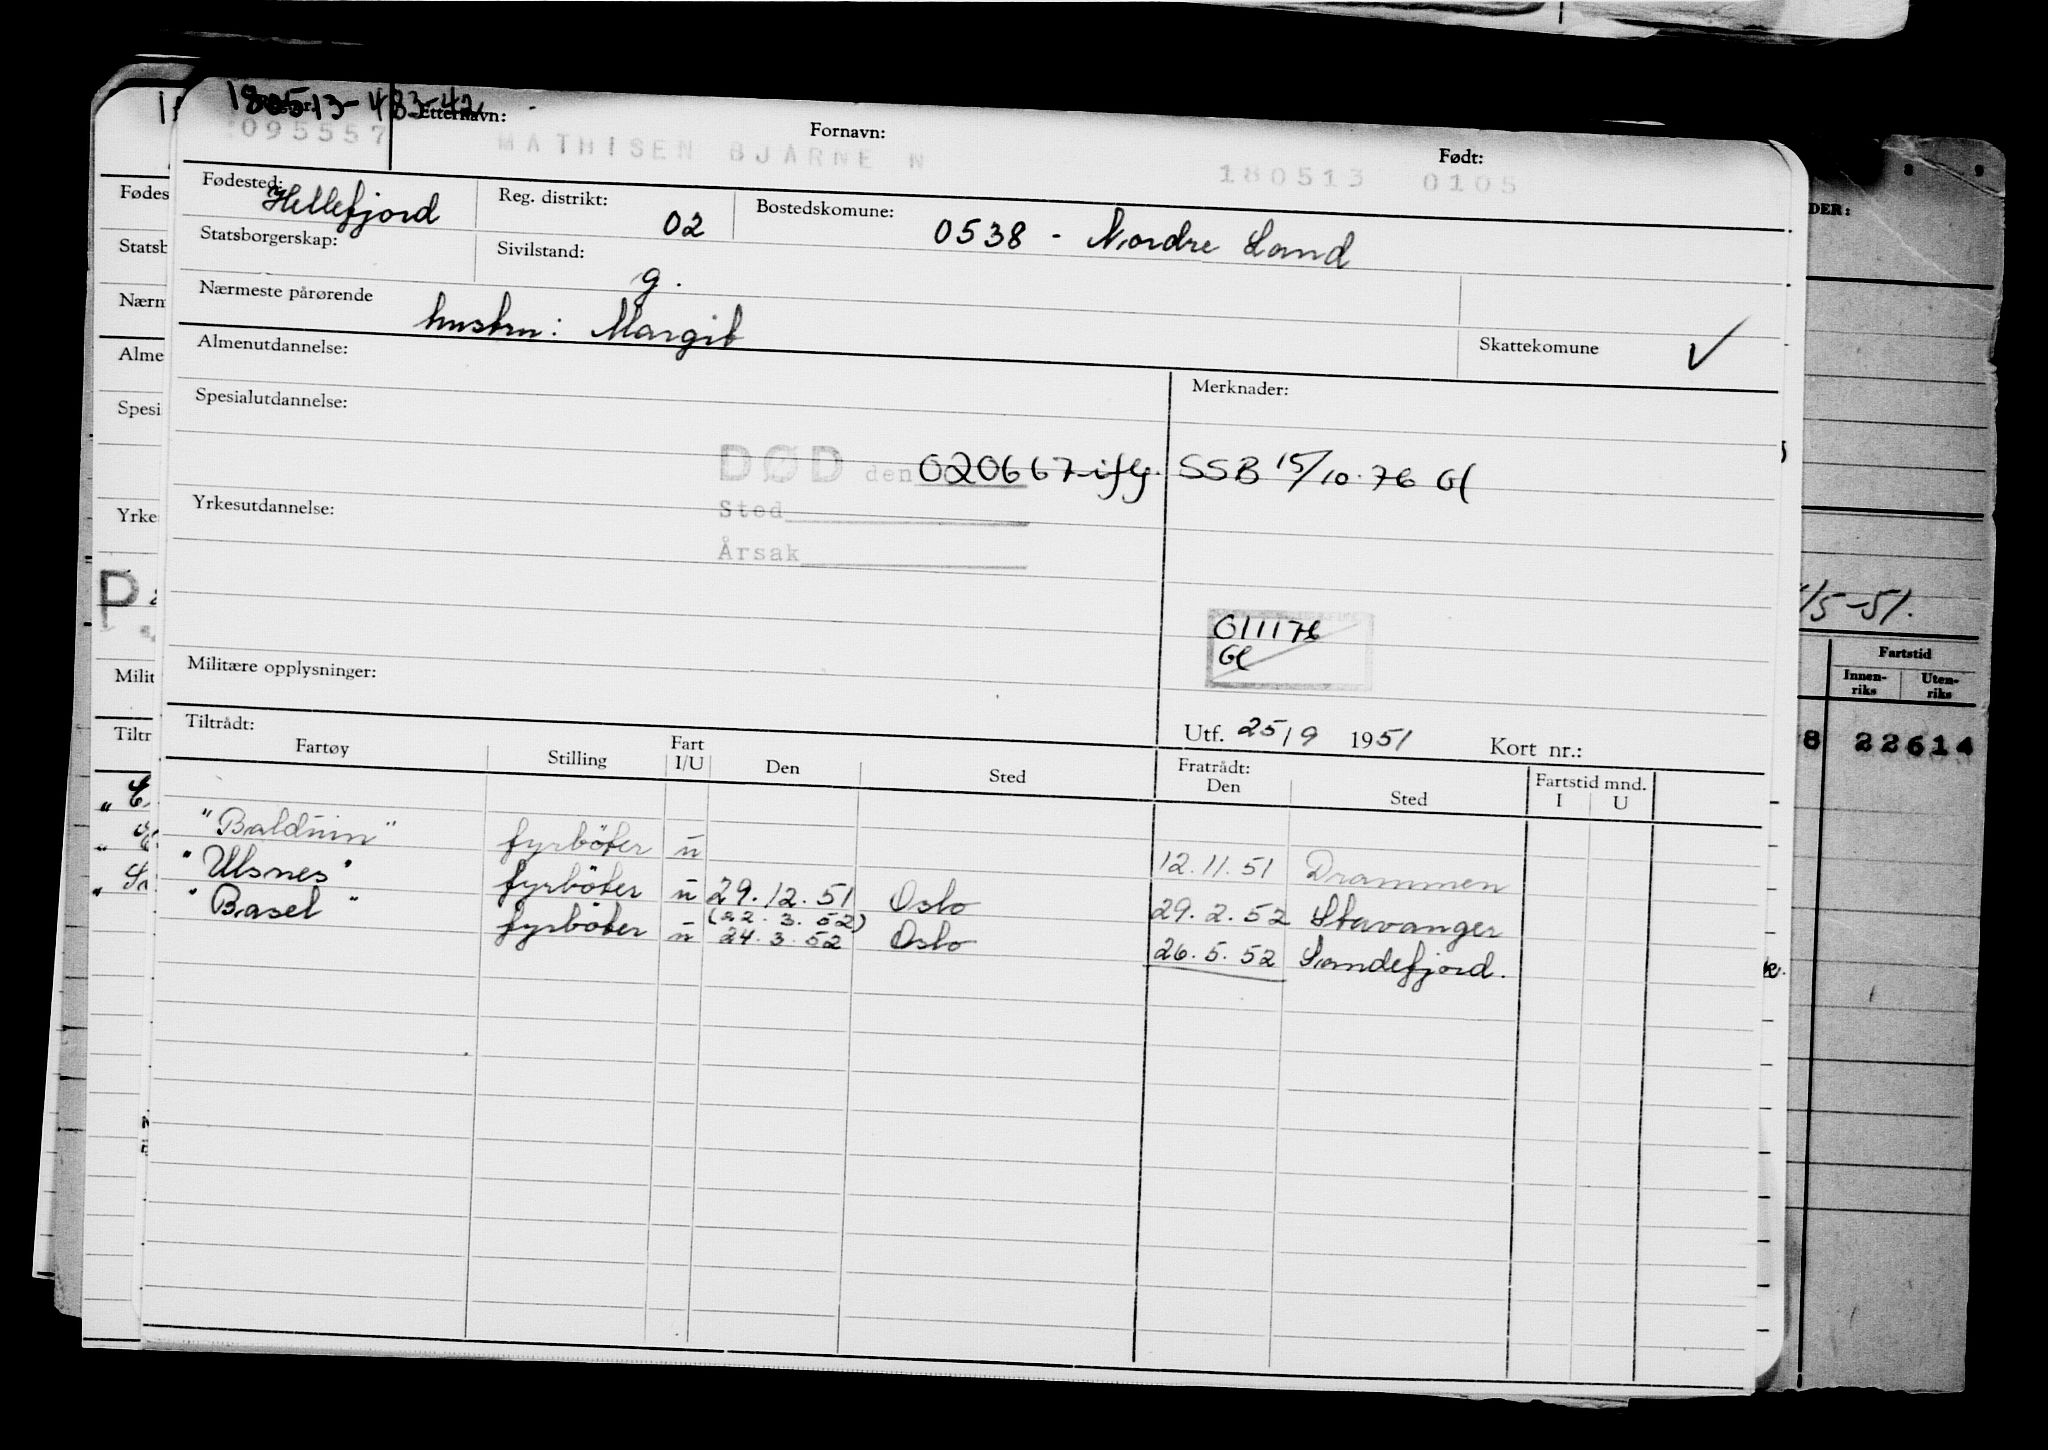 180513-483-42
Etternavn: Fornavn: Født:
095557 MATHISEN BJARNE N 180513 0105
Fødested: Hellefjord Reg. distrikt: 02 Bostedskomune: 0538 - Nordre Land
Statsborgerskap: Sivilstand: g.
Nærmeste pårørende hustru: Margit Skattekomune ✓
Almenutdannelse: Merknader:
Spesialutdannelse:
DØD den 020667 ifg. SSB 15/10.76 Gl
Sted
Yrkesutdannelse:
Årsak
011176
Gl
Militære opplysninger:
Utf. 25/9 1951 Kort nr.:
Tiltrådt: Fratrådt:
Fartøy Stilling Fart I/U Den Sted Den Sted Fartstid mnd. I U
"Balduin" fyrböter u 12.11.51 Drammen
"Ulsnes" fyrböter u 29.12.51 Oslo 29.2.52 Stavanger
(22.3.52)
"Basel" fyrböter u 24.3.52 Oslo 26.5.52 Sandefjord.
Fødes
Statsb
Nærm
Alme
Spesi
Yrke
P
Milit
Tiltr
DER:
8 9
/5-51.
Fartstid
Innen-riks Uten-riks
8 22614